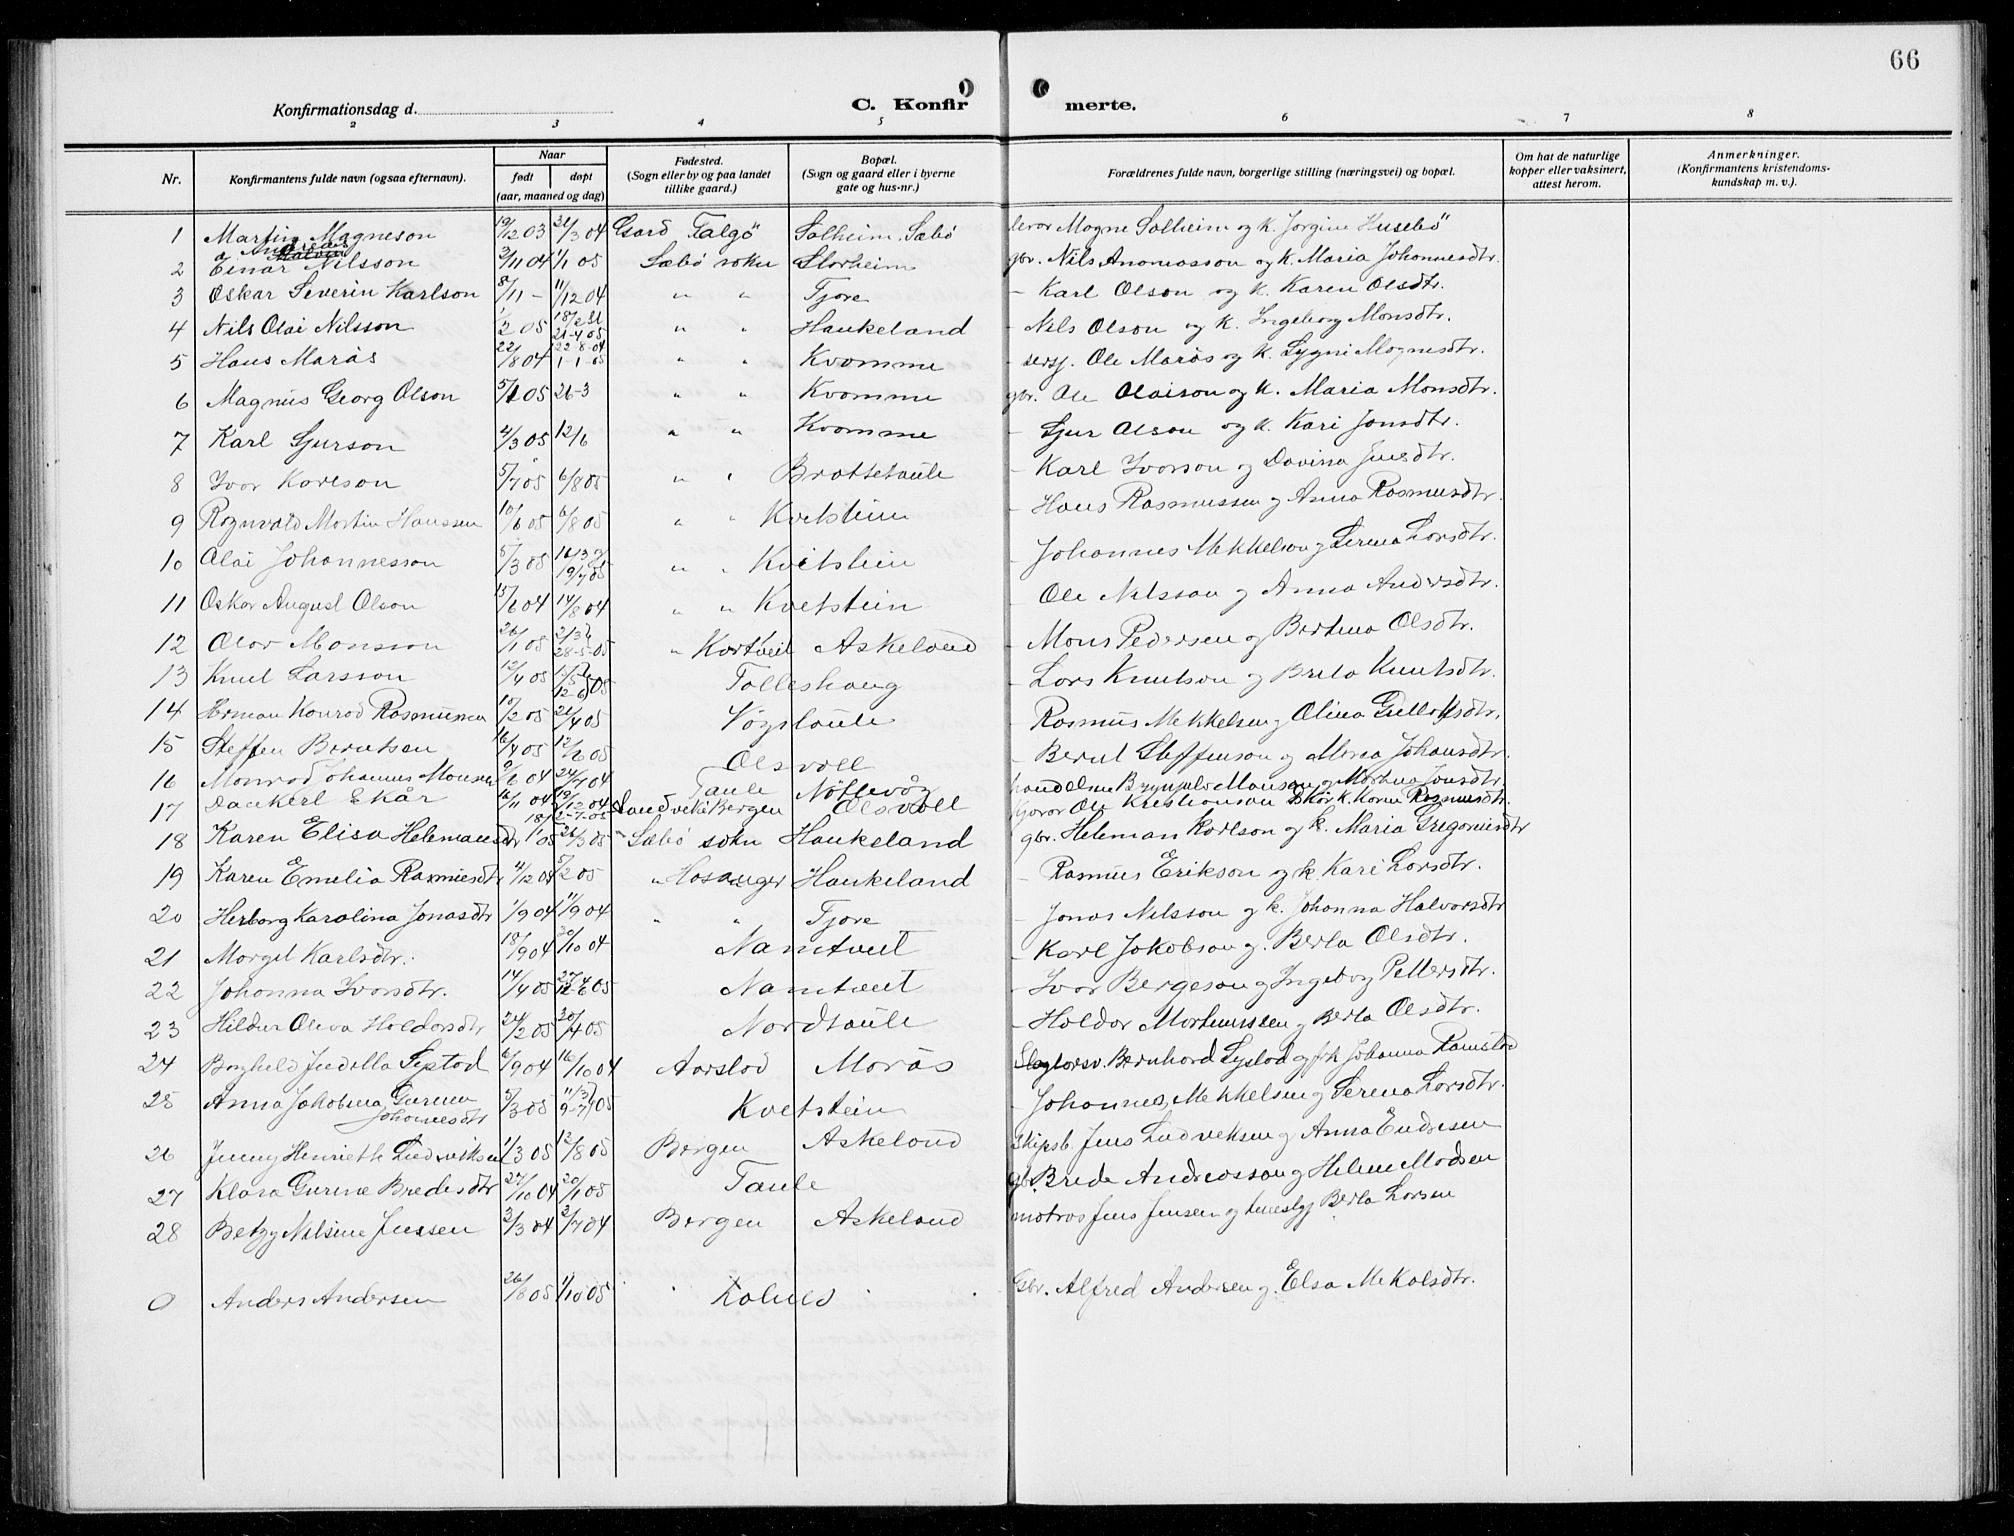 66
Konfirmationsdag d.
C. Konfir merte.
2 3 4 5 6 7 8
Nr. Konfirmantens fulde navn (ogsaa efternavn). Naar født døpt (aar, maaned og dag) Fødested. (Sogn eller by og paa landet tillike gaard.) Bopæl. (Sogn og gaard eller i byerne gate og hus-nr.) Forældrenes fulde navn, borgerlige stilling (næringsvei) og bopæl. Om hat de naturlige kopper eller vaksinert, attest herom. Anmerkninger. (Konfirmantens kristendoms- kundskap m. v.).
1 Martin Magneson 19/12 03 21/3 04 Falgö Solheim, Sæbö Magne Solheim og k. Jorgine Husebö
2 Einar Nilsson 3/11 04 1/1 05 Sæbö sokn Storheim gbr. Nils og k. Maria Johannesdtr.
3 Oskar Severin Karlson 8/11 – 11/12 04 " " Tjore – Karl Olson og k. Karen Olsdtr.
4 Nils Olai Nilsson 1/2 05 18/2 21-4-05 " " Haukeland – Nils Olson og k. Ingeborg Monsdtr.
5 Hans Marås 22/8 04 22-8-04 1-1-05 " " Kvomme – Ole Marås og k. Sygni Magnesdtr.
6 Magnus Georg Olson 5/1 05 26-3 " " Kvomme gbr. Ole Olaison og k. Maria Monsdtr.
7 Karl Sjurson 4/3 05 12/6 " " Kvomme – Sjur Olson og k. Kari Jonsdtr.
8 Ivar Karlson 5/7 05 6/8 05 " " Brattetaule – Karl Ivarson og Davina Jensdtr.
9 Rognvald Martin Hanssen 10/6 05 6/8 05 " " Kvitstein – Hans Rasmussen og Anna Rasmusdtr.
10 Olai Johannesson 5/3 05 19/7 05 " " Kvitstein – Johannes Mikkelson og Serina Larsdtr.
11 Oskar August Olson 15/6 04 14/8 04 " " Kvitstein – Ole Nilsson og Anna Andersdtr.
12 Olav Monsson 26/1 05 28-5-05 " Kartveit Askeland – Mons Pedersen og Bertina Olsdtr.
13 Knut Larsson 12/4 05 12-6 05 Tolleshaug – Lars Knutson og Brita Knutsdtr.
14 Herman Konrad Rasmussen 10/2 05 21/4 05 Vågstaule – Rasmus Mikkelsen og Olina Gullaksdtr.
15 Steffen Berntsen 16/4 05 12/6 05 Olsvoll – Bernt Steffenson og Maria Johansdtr.
16 Monrad Johannes Monsen 9/6 04 24/7 04 Taule Nöttevåg Brynjulv Monsen og Martha Jonsdtr.
17 Dankert Skår 16/11 04 19/12 04 2-7-05 Sandviki Bergen Olsvoll Ole Kristianson Skår k. Karen Rasmusdtr.
18 Karen Elisa Helemansdtr 18/1 05 26/3 05 Sæbö sokn Haukeland gbr. Heleman Karlson og k. Maria Gregoriusdtr
19 Karen Emelia Rasmusdtr 4/12 04 5/2 05 " Hosanger Haukeland – Rasmus Erikson og k. Kari Larsdtr.
20 Herborg Karolina Jonasdtr 1/9 04 11/9 04 " " Tjore – Jonas Nilsson og k. Johanna Halvorsdtr
21 Margit Karlsdtr. 18/9 04 30/10 04 Namtveit – Karl Jakobson og Berta Olsdtr.
22 Johanna Ivarsdtr. 14/4 05 12-6 05 Namtveit – Ivar Bergeson og Ingeborg Pettersdtr.
23 Hildur Oliva Holdorsdtr 24/2 05 30/4 05 Nordtaule – Holdor Mortenssen og Berta Olsdtr.
24 Borghild Judella Systad 6/9 04 16/10 04 Aarstad Marås Bernhard Systad og frk Johanna Ramstad
25 Anna Jakobina Gurina Johannesdtr 5/3 05 11/3 9-7 05 Kvitstein – Johannes Mikkelsen og Serina Larsdtr.
26 Jenny Henriette Ludviksen 1/3 05 12/8 05 Bergen Askeland Skipsb. Jens Ludviksen og Anna Endresen
27 Klara Gurine Bredesdtr 27/10 04 20/1 05 Taule gbr. Brede Andreasson og Helene Madsen
28 Betzy Nilsine Jenssen 3/3 04 3/7 04 Bergen Askeland matros Jens Jensen og Berta Larsen
0 Anders Andersen 26/8 05 1/10 05 " " Kolnes Gbr. Alfred Andersen og Elsa Mikalsdtr.